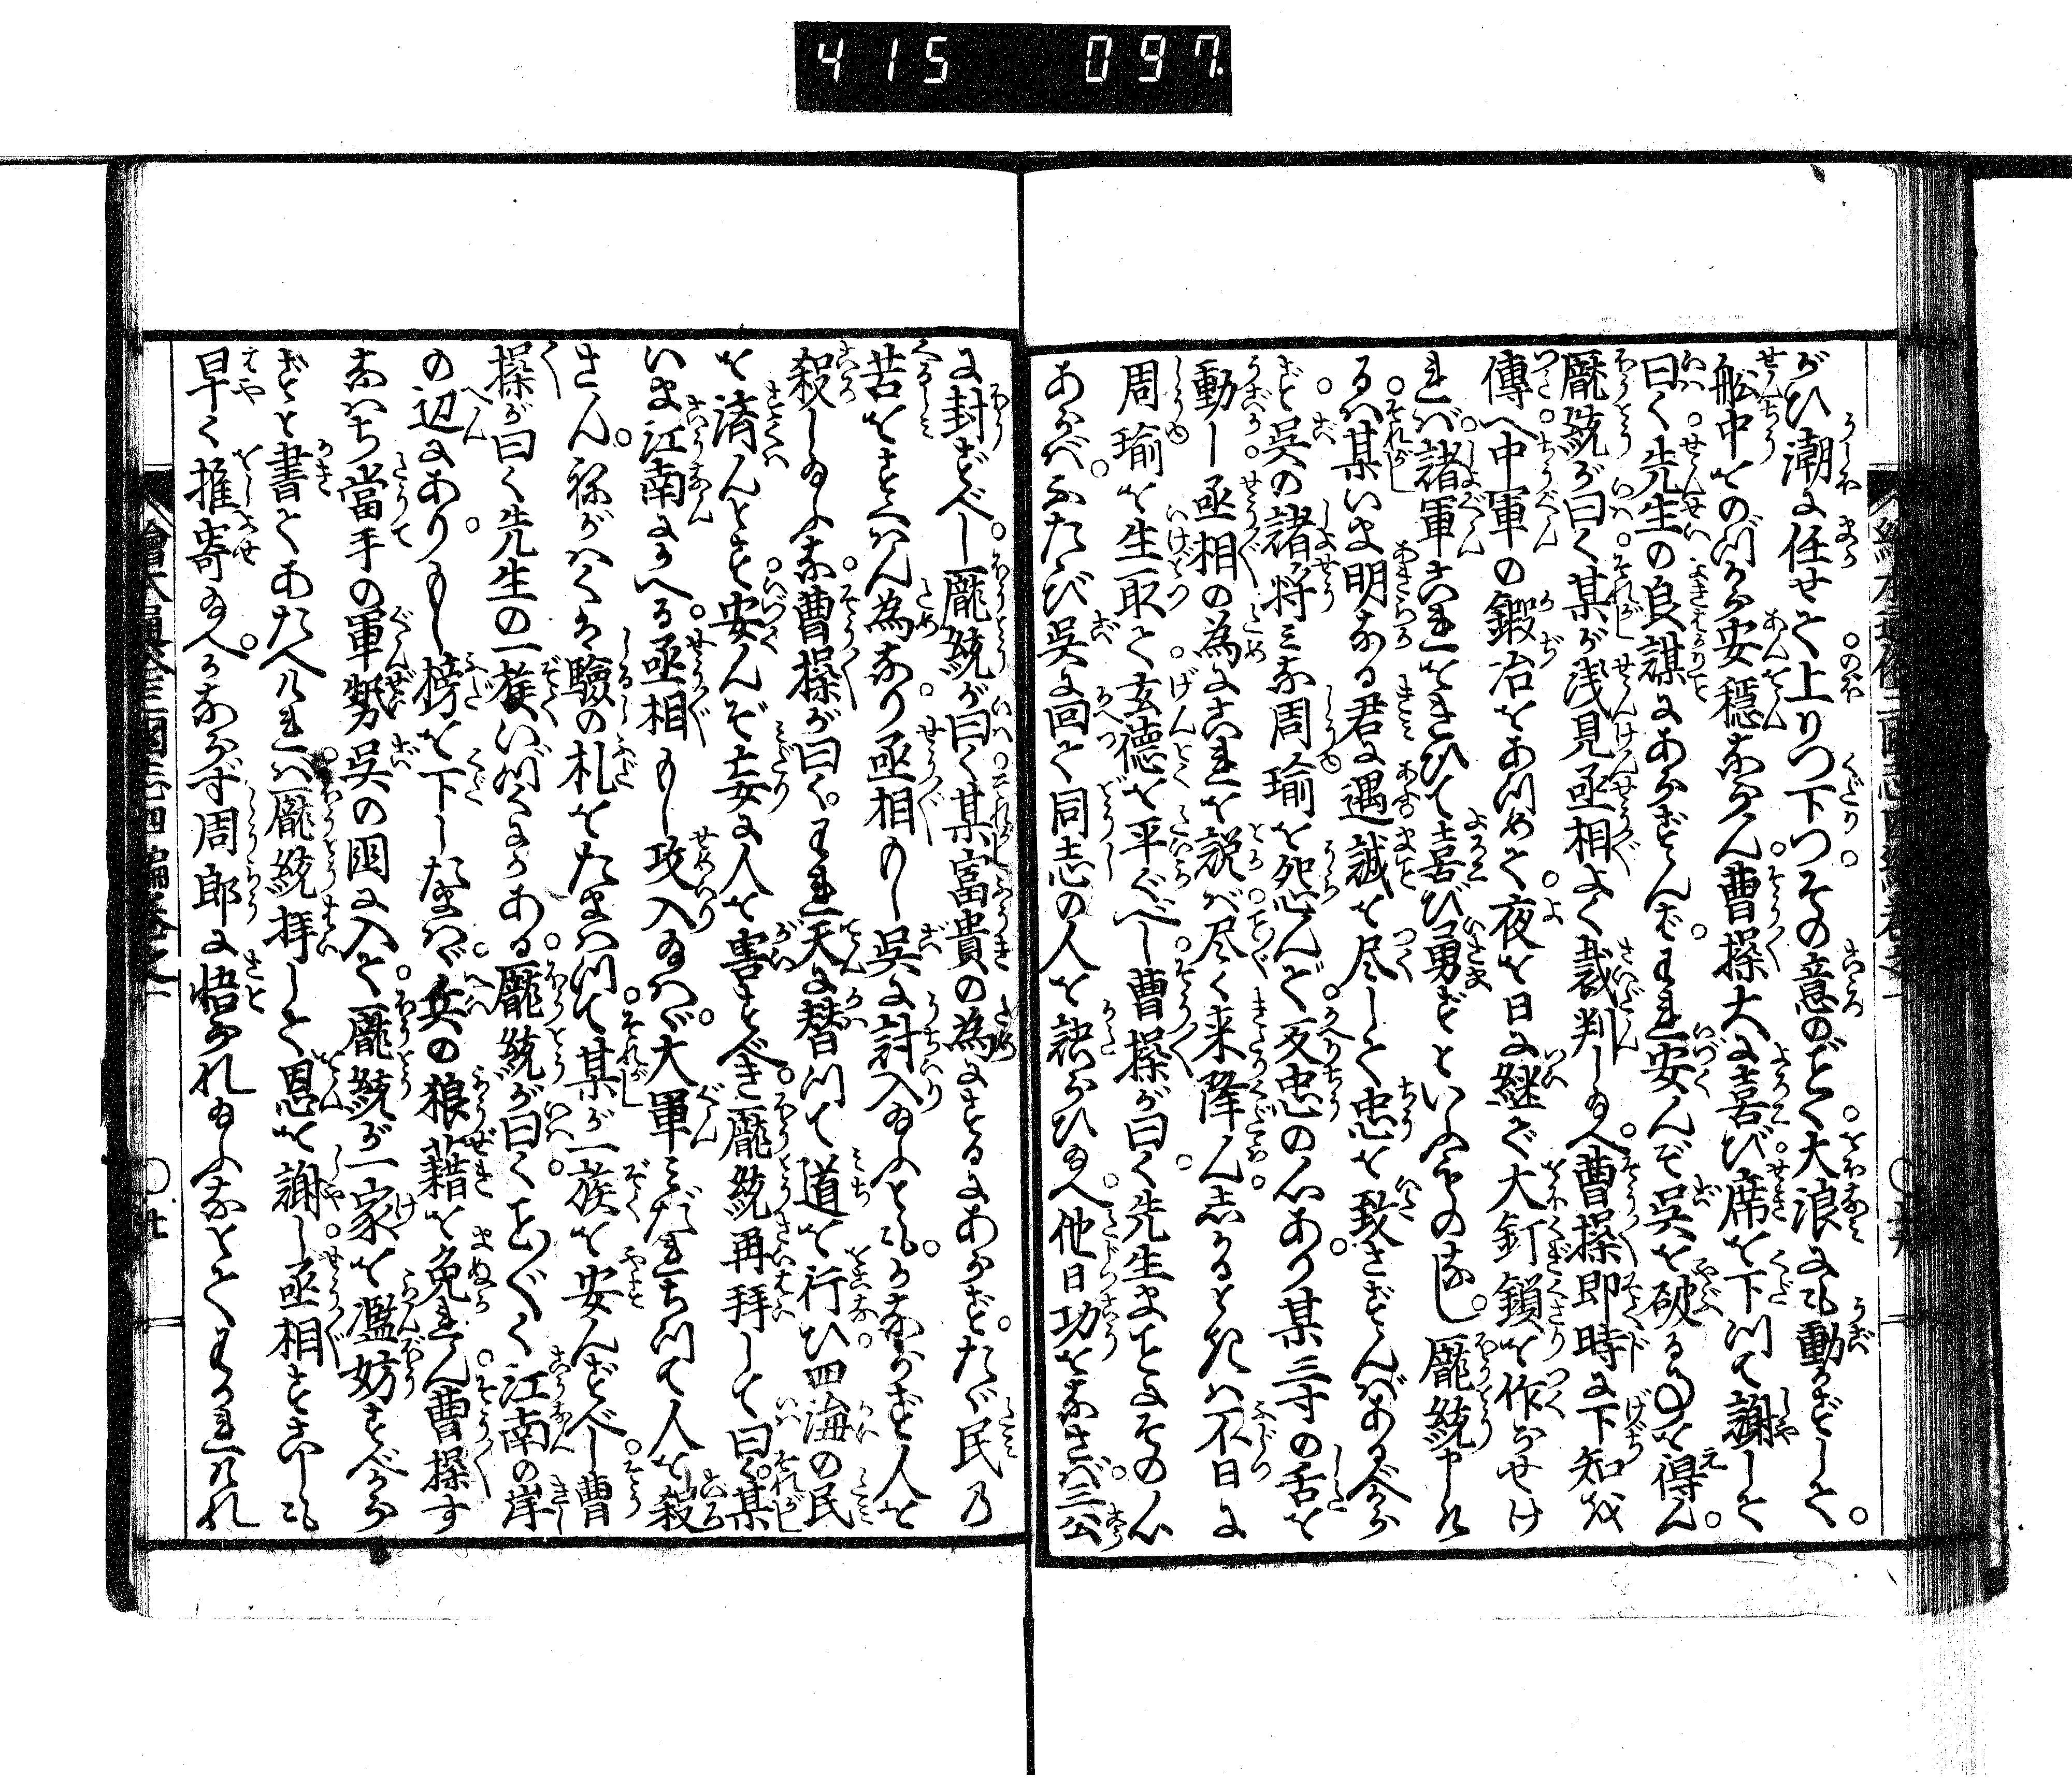 415 097.
がひ潮に任せて上りつ下つその意のごとく大浪にも動かずして
船中をのづから安穏ならん曹操大に喜び席を下つて謝して
曰く先生の良謀にあらずんばわれ安んぞ呉を破る事を得ん
龐統が曰く某が浅見丞相よく裁判し給へ曹操即時に下知を
傳へ中軍の鍛冶をあつめて夜を日に継で大釘鎖を作らせけ
れば諸軍これをきひて喜び勇ずといふものなし龐統申ける
るは某いま明なる君に遇誠を尽して忠を致さずんばあるべから
ず呉の諸将みな周瑜を怨んで反忠の心あり某三寸の舌を
動し丞相の為にこれを説ば尽く来降ん志かるときは不日に
周瑜を生取て玄徳を平ぐべし曹操が曰く先生まことにその心
あらばふたゝび呉に回て同志の人を誘ひ給へ他日功をなさば三公
に封ずべし龐統が曰く某富貴の為にするにあらずたゞ民の
苦をすくはん為なり丞相もし呉に討入給ふともかならず人を
殺し給ふな曹操が曰くわれ天に替つて道を行ひ四海の民
を済んとす安んぞ妄に人を害すべき龐統再拜して曰く某
いま江南にかへる丞相もし攻入給はゞ大軍みだれちつて人を殺
さんねがはくは驗の札をたまはつて某が一族を安んずべし曹
操が曰く先生の一族いづくにかある龐統が曰くことごとく江南の岸
の辺にありもし榜を下したまはゞ兵の狼藉を免れん曹操す
なはち當手の軍勢呉の国に入て龐統が一家を濫妨すべから
ずと書てあたへければ龐統拝して恩を謝し丞相すこしも
早く推寄給へかならず周郎に悟られ給ふなとてわかれければ